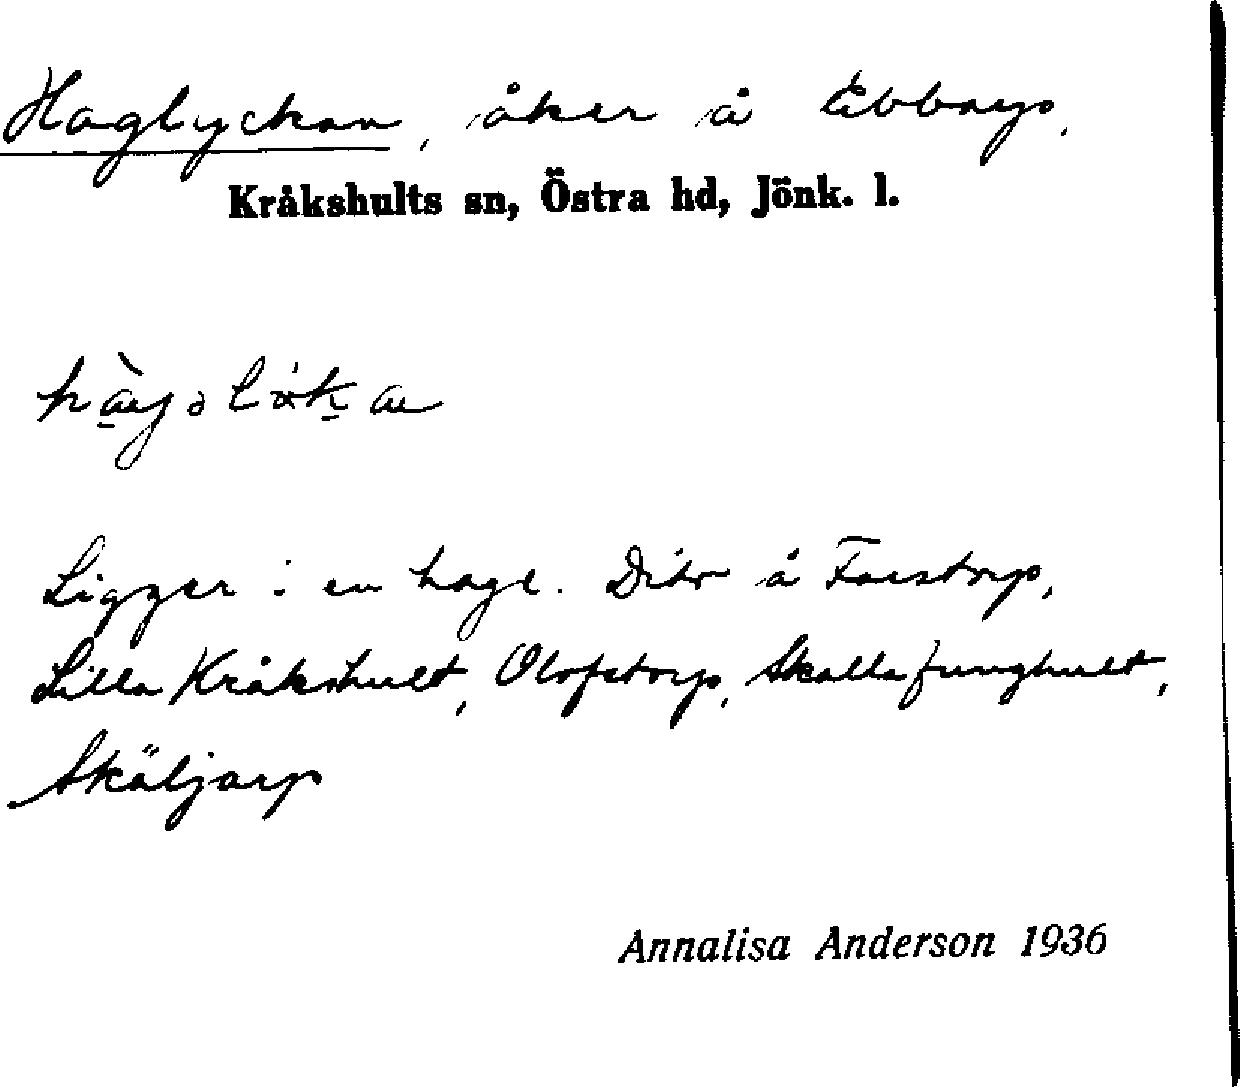 Haglyckan, åker å Ebbarp,
Kråkshults sn, Östra hd, Jönk. l.
Ligger i en hage. Ditor å Farstorp,
Lilla Kråkshult, Olofstorp, Skallafunghult,
Skäljarp
Annalisa Anderson 1936